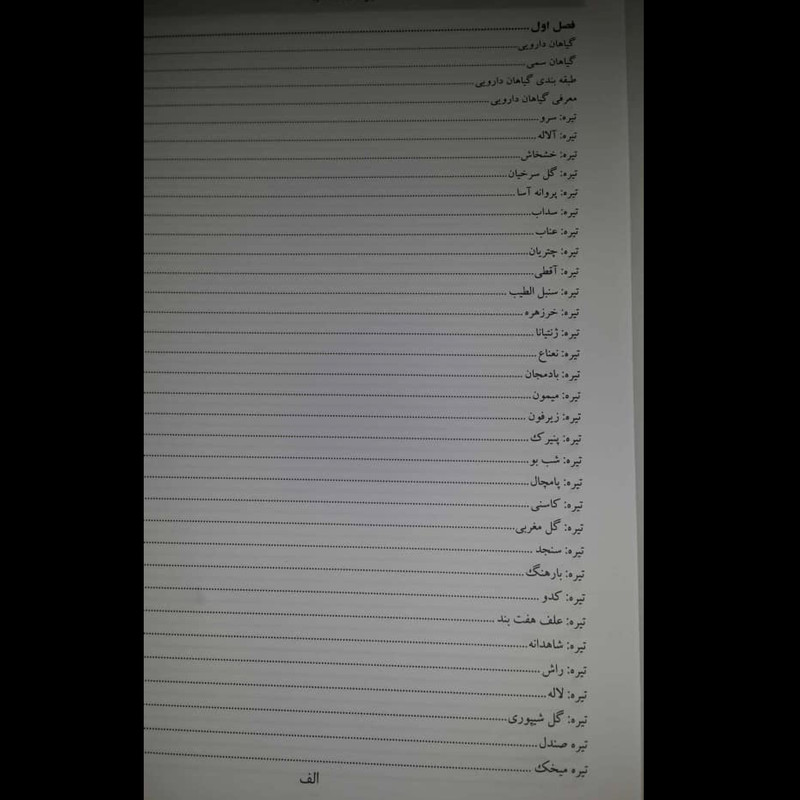 فصل اول
گیاهان دارویی
گیاهان سمی
طبقه بندی گیاهان دارویی
معرفی گیاهان دارویی
تیره: سرو
تیره: آلاله
تیره: خشخاش
تیره: گل سرخیان
تیره: پروانه آسا
تیره: سداب
تیره: عناب
تیره: چتریان
تیره: آقطی
تیره: سنبل الطیب
تیره: خرزهره
تیره: ژنتیانا
تیره: نعناع
تیره: بادمجان
تیره: میمون
تیره: زیرفون
تیره: پنیرک
تیره: شب بو
تیره: پامچال
تیره: کاسنی
تیره: گل مغربی
تیره: سنجد
تیره: بارهنگ
تیره: کدو
تیره: علف هفت بند
تیره: شاهدانه
تیره: راش
تیره: لاله
تیره: گل شیپوری
تیره صندل
تیره میخک
الف